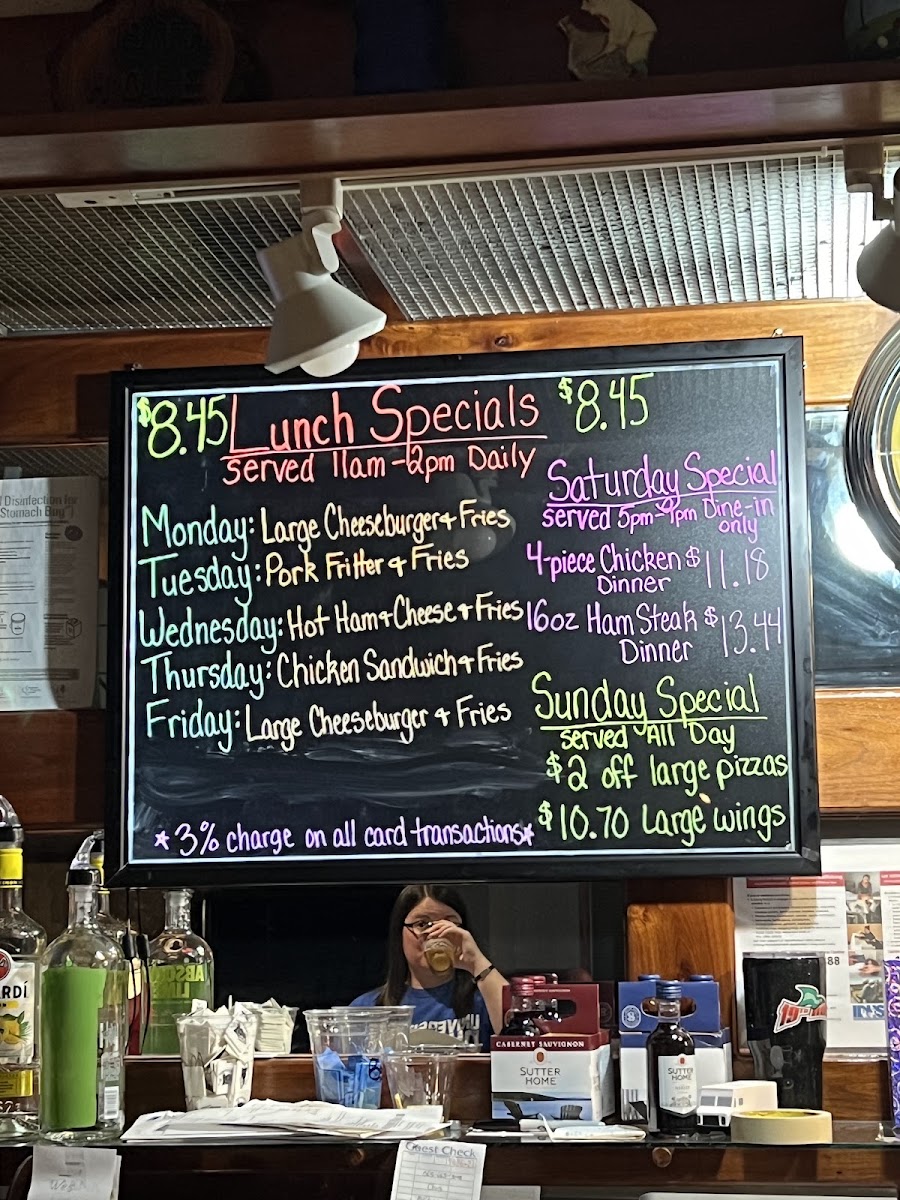 $8.45 Lunch Specials $8.45
served 11am-2pm Daily
Monday: Large Cheeseburger & Fries
Tuesday: Pork Fritter & Fries
Wednesday: Hot Ham & Cheese & Fries
Thursday: Chicken Sandwich & Fries
Friday: Large Cheeseburger & Fries
*3% charge on all card transactions*
Saturday Special
served 5pm-9pm Dine-in
only
4-piece Chicken $11.18
Dinner
16oz Ham Steak $13.44
Dinner
Sunday Special
served All Day
$2 off large pizzas
$10.70 Large wings
Disinfection for
Stomach Bug")
ABSOLUT
CABERNET SAUVIGNON
SUTTER
HOME
SUTTER
HOME
19th
Guest Check